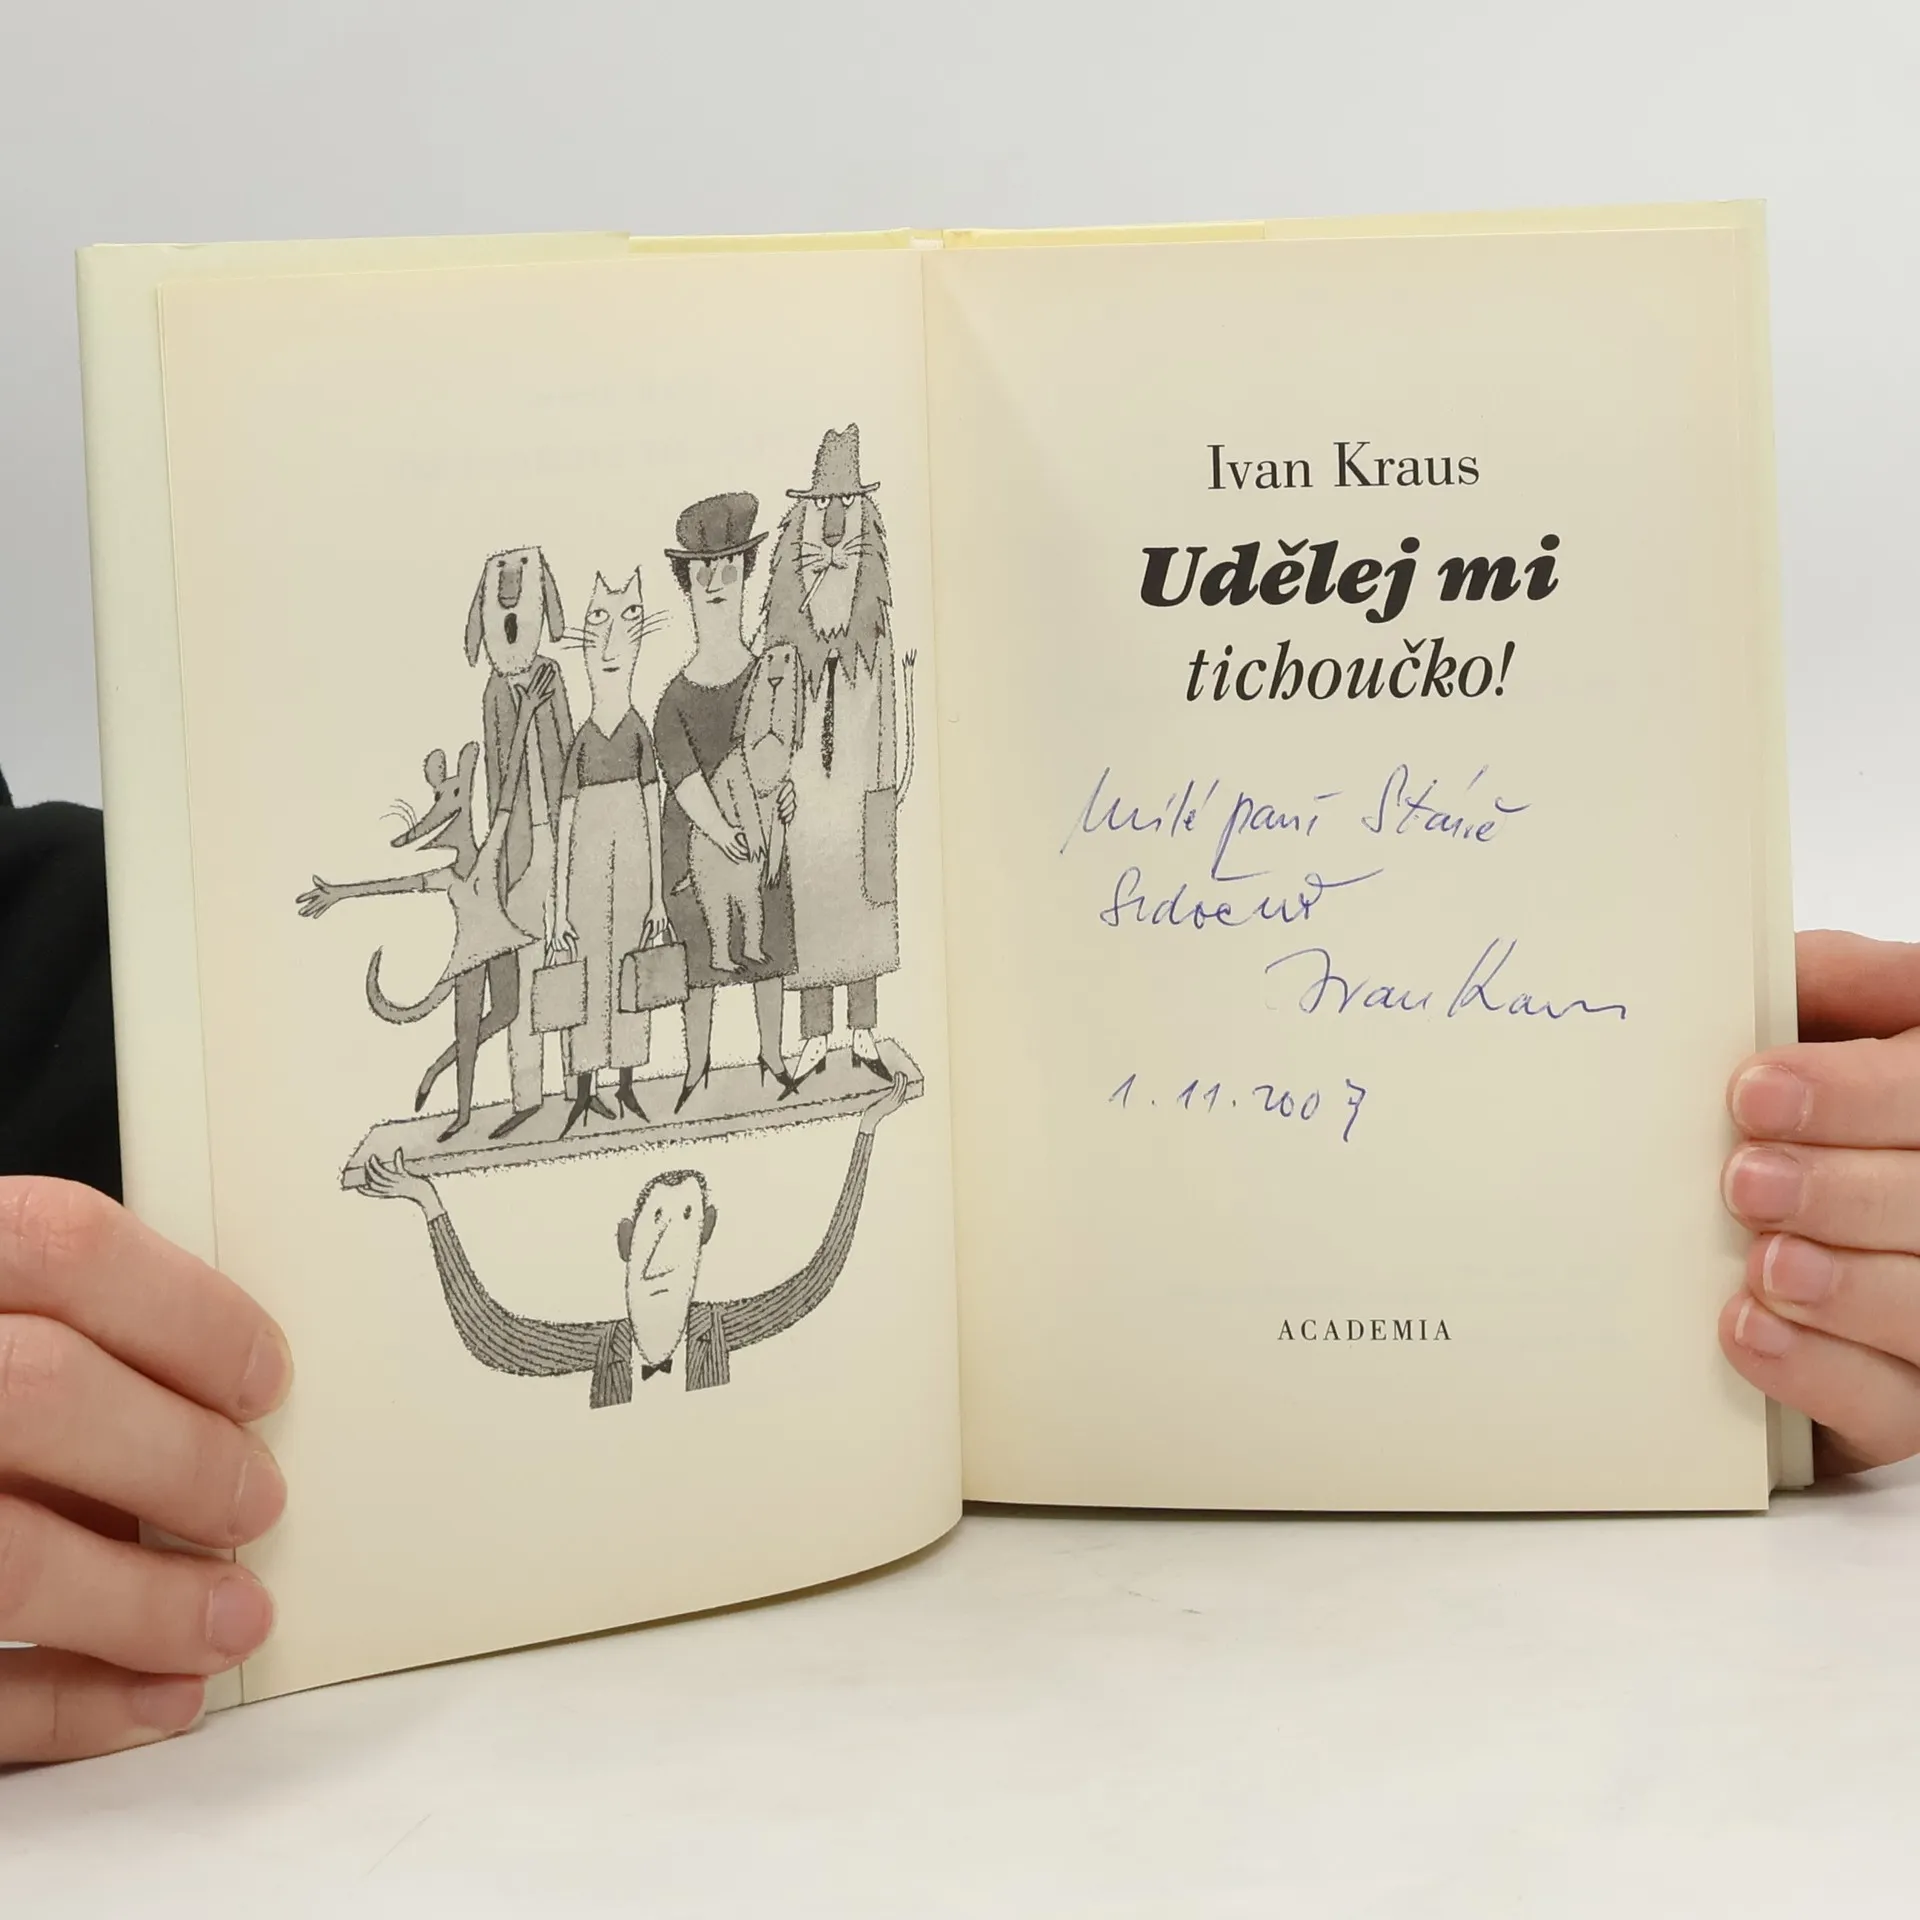 Ivan Kraus
Udělej mi
tichoučko!
Milé paní Stáně
Srdečně
Ivan Kraus
1.11.2007
ACADEMIA